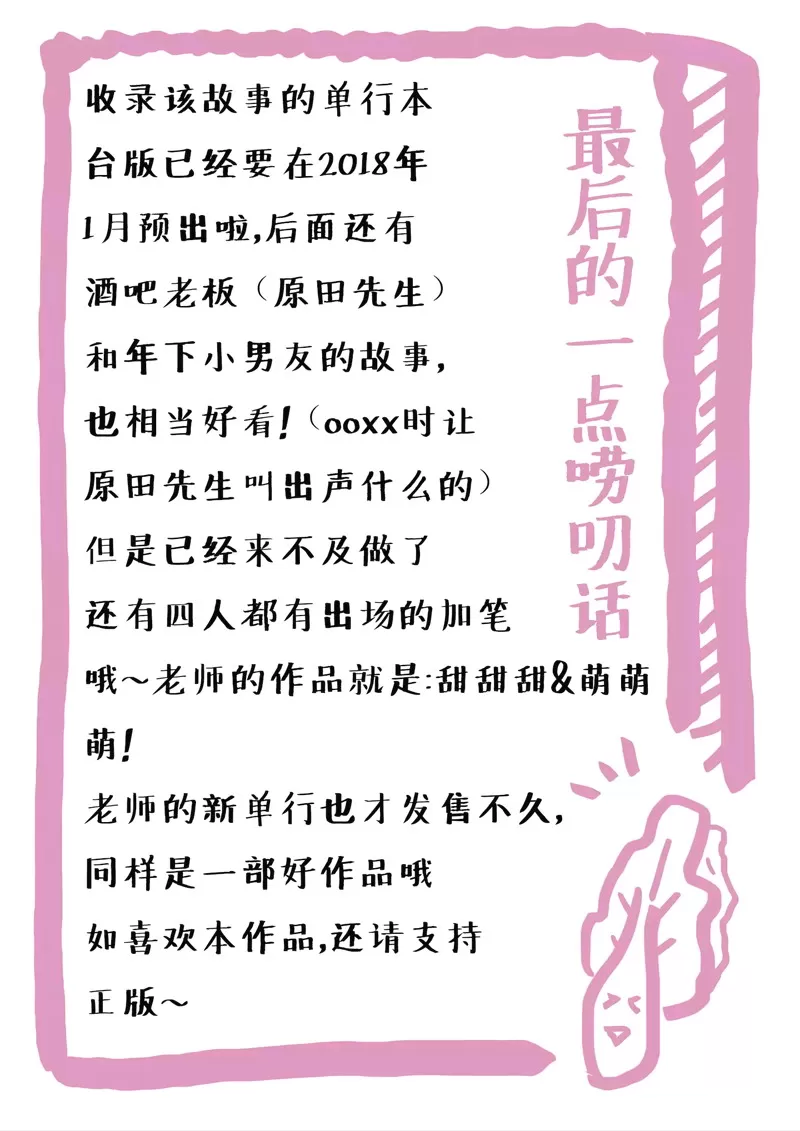 最后的一点唠叨话
收录该故事的单行本
台版已经要在2018年
1月预出啦,后面还有
酒吧老板（原田先生）
和年下小男友的故事,
也相当好看!（ooxx时让
原田先生叫出声什么的）
但是已经来不及做了
还有四人都有出场的加笔
哦~老师的作品就是:甜甜甜&萌萌
萌!
老师的新单行也才发售不久,
同样是一部好作品哦
如喜欢本作品,还请支持
正版~